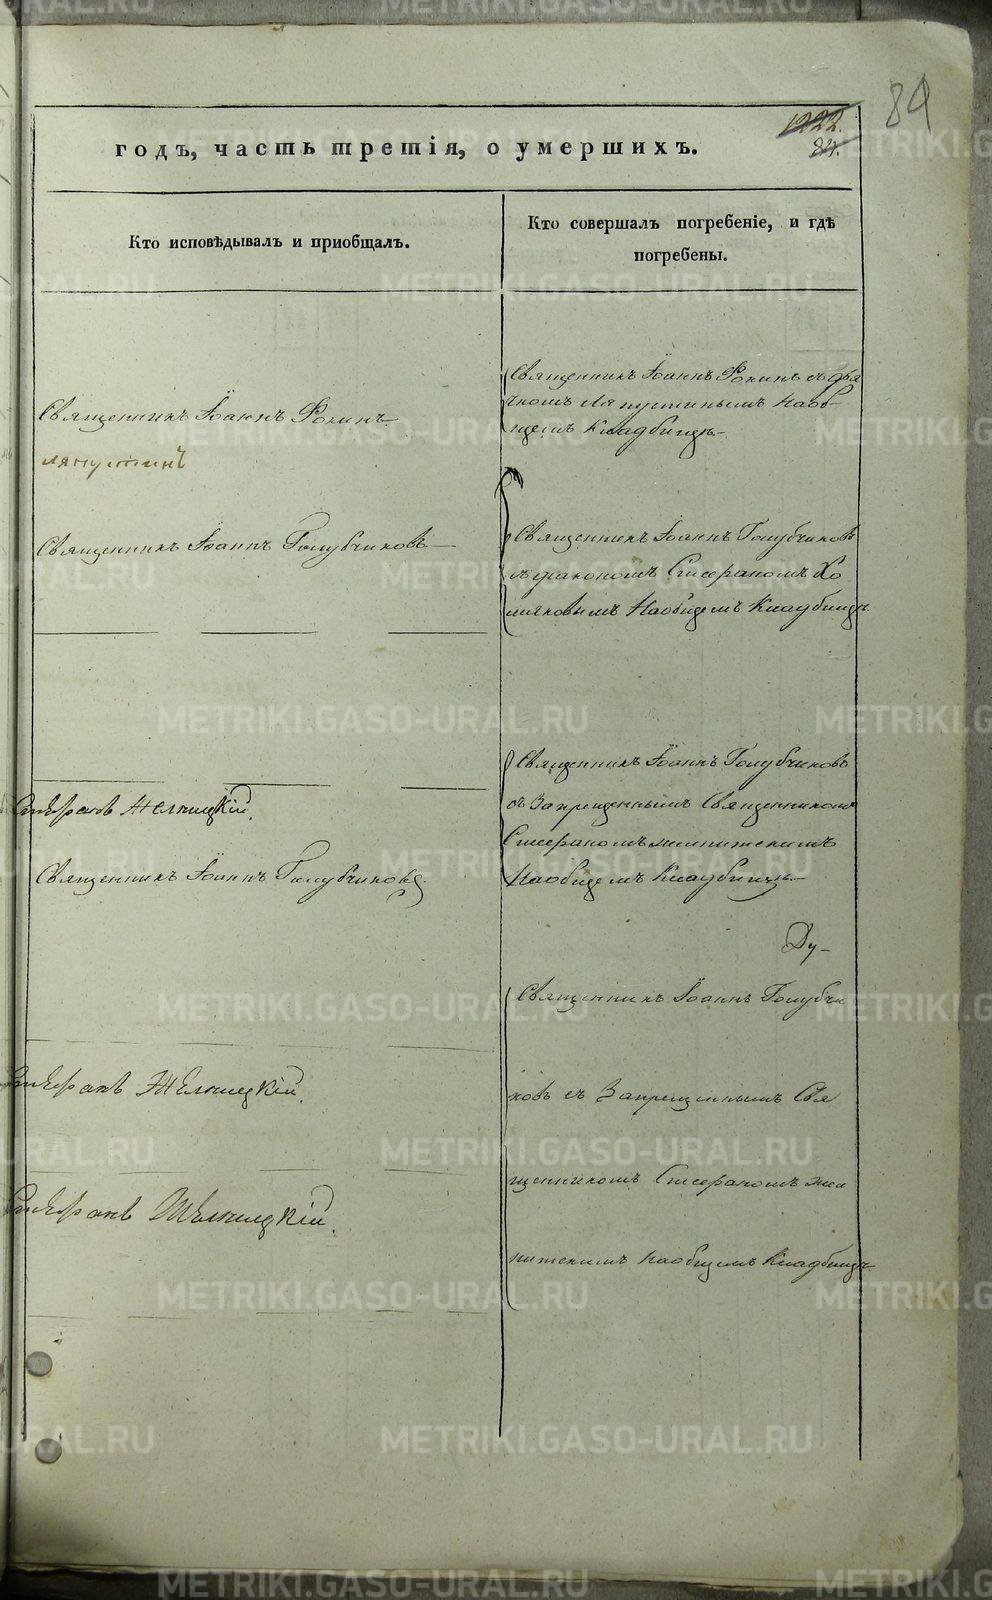 89
1222.
84.
годъ, часть третія, о умершихъ.
Кто исповѣдывалъ и приобщалъ.
Кто совершалъ погребеніе, и гдѣ
погребены.
Священникъ Іоаннъ Фокинъ
Ляпустинъ
Священникъ Іоаннъ Фокинъ съ дья
чкомъ Ляпустинымъ на об
щемъ кладбищѣ
Священникъ Іоаннъ Голубчиковъ
Священникъ Іоаннъ Голубчиковъ
съ диакономъ Стефаномъ Хо
мяковымъ на общемъ кладбищѣ
Стефанъ Желницкій.
Священникъ Іоаннъ Голубчиковъ
Священникъ Іоаннъ Голубчиковъ
съ Запрещеннымъ Священникомъ
Стефаномъ
на общемъ кладбищѣ
Ду-
Стефанъ Желницкій.
Стефанъ Желницкій.
Священникъ Іоаннъ Голубчи
ковъ съ Запрещеннымъ Свя
щенникомъ Стефаномъ Жел
ницкимъ на общемъ кладбищѣ
METRIKI.GASO-URAL.RU